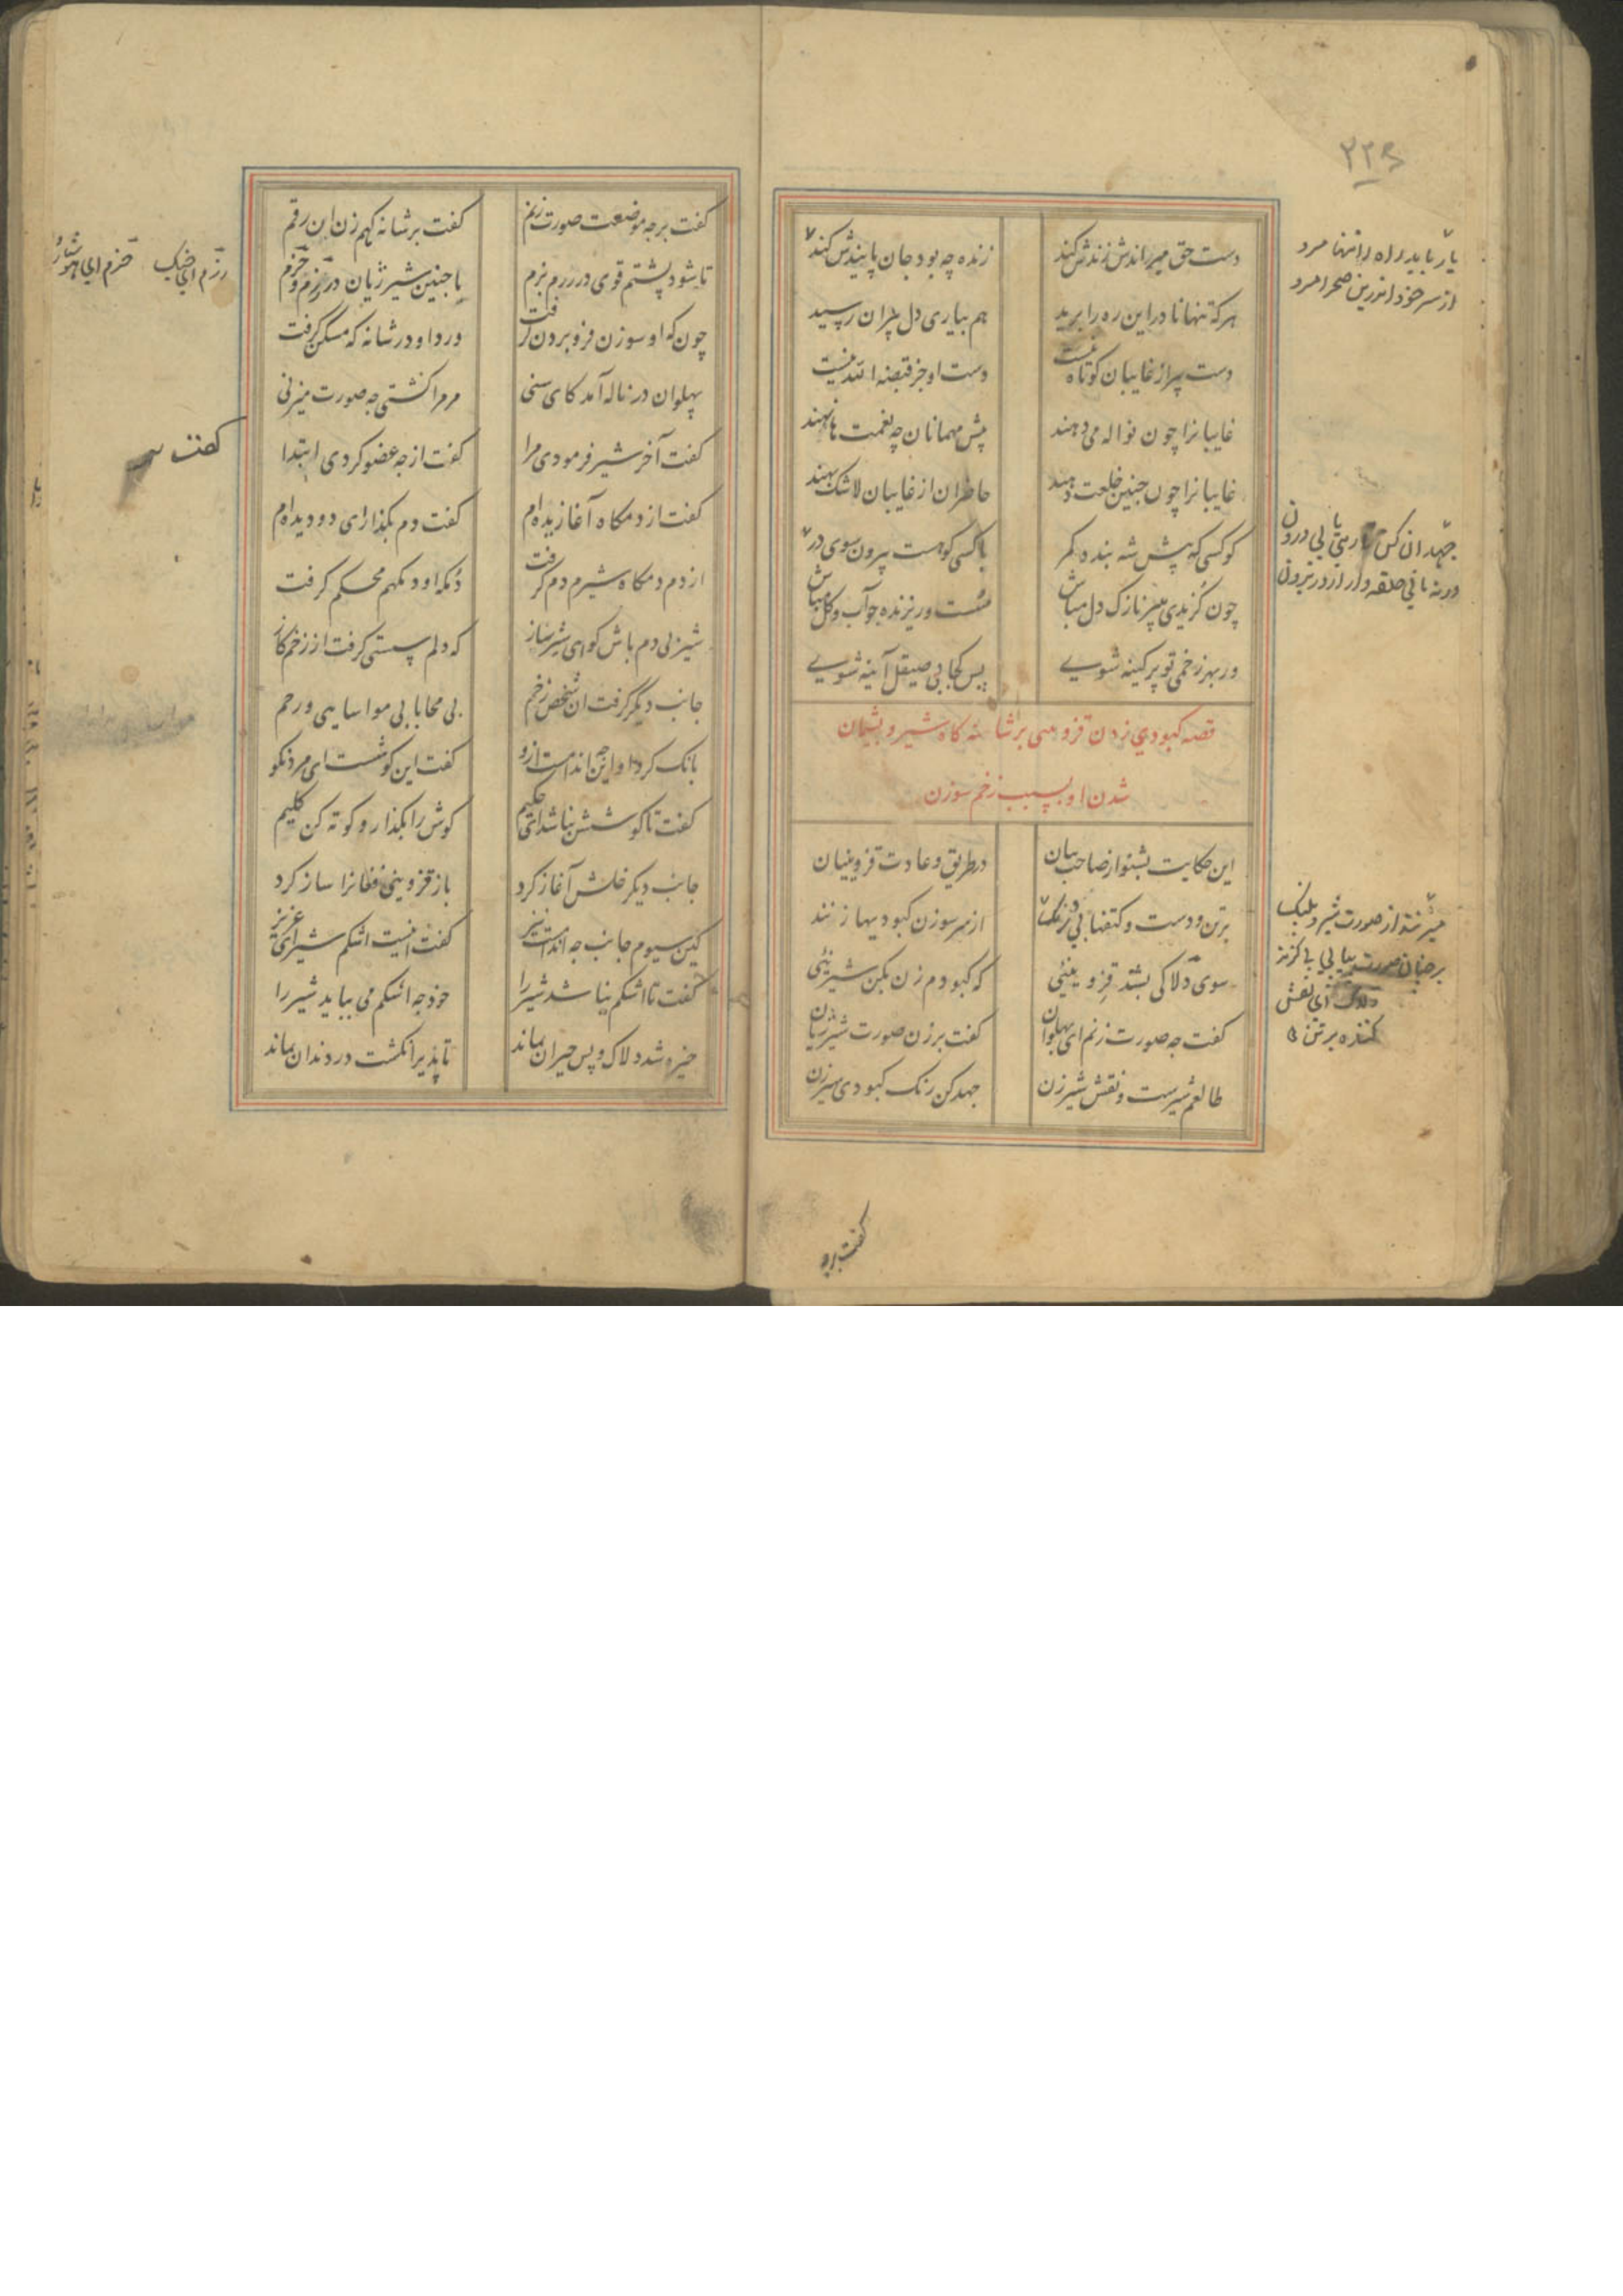 ۲۲۶
دست حق میراندش زندش کند
زنده چه بود جان پایندش کند
هر که تنها نادرا این ره را برید
هم بیاری دل پیران رسید
دست پیر از غایبان کوتاه نیست
دست او جز قبضه الله نیست
غایبانرا چون نواله می دهند
پیش مهمانان چه نعمت ها نهند
غایبانرا چون چنین خلعت دهند
حاضران از غایبان لاشک بهند
کو کسی که پیش شه بندد کمر
با کسی کو هست بیرون سوی در
چون گزیدی پیر نازک دل مباش
سست و ریزنده چو آب و گل مباش
ور بهر زخمی تو پر کینه شوی
پس کجا بی صیقل آینه شوی
قصه کبودی زدن قزوینی بر شانه گاه شیر و پشیمان
شدن او بسبب زخم سوزن
این حکایت بشنو از صاحب بیان
در طریق و عادت قزوینیان
بر تن و دست و کتفها بی درنگ
از سر سوزن کبودیها زنند
سوی دلاکی بشد قزوینیی
که کبودم زن بکن شیرینیی
گفت چه صورت زنم ای پهلوان
گفت بر زن صورت شیر ژیان
طالعم شیرست و نقش شیر زن
جهد کن رنک کبودی سیر زن
یار باید راه را تنها مرو
از سر خود اندرین صحرا مرو
جهد ان کن تا رهی یابی درون
ورنه مانی حلقه وار از در برون
میزنند از صورت شیر و پلنک
بر چنان صورت پیاپی بی گزند
دلاک ای نقش
کننده بر تن
گفت بر
گفت بر چه موضعت صورت زنم
گفت بر شانه گهم زن این رقم
تا شود پشتم قوی در رزم بزم
با چنین شیر ژیان در رزم و حزم
چون که او سوزن فرو بردن گرفت
درد او در شانه گه مسکن گرفت
پهلوان در ناله آمد کای سنی
مر مرا کشتی چه صورت میزنی
گفت آخر شیر فرمودی مرا
گفت از چه عضو کردی ابتدا
گفت از دمگاه آغازیده ام
گفت دم بگذار ای دو دیده ام
از دم دمگاه شیرم دم گرفت
دمگه او دمگهم محکم گرفت
شیر بی دم باش گو ای شیر ساز
که دلم سستی گرفت از زخم گاز
جانب دیگر گرفت ان شخص زخم
بی محابا بی مواسایی و رحم
بانک کرد او این چه اندامست ازو
گفت این گوشست ای مرد نکو
گفت تا گوشش نباشد ای حکیم
گوش را بگذار و کوته کن گلیم
جانب دیگر خلش آغاز کرد
باز قزوینی فغانرا ساز کرد
کین سیوم جانب چه اندامست نیز
گفت اینست اشکم شیر ای عزیز
گفت تا اشکم نباشد شیر را
خود چه اشکم می بباید شیر را
خیره شد دلاک و پس حیران بماند
تا بدیر انگشت در دندان بماند
رزم ای جنک
حزم ای هوشیار
گفت